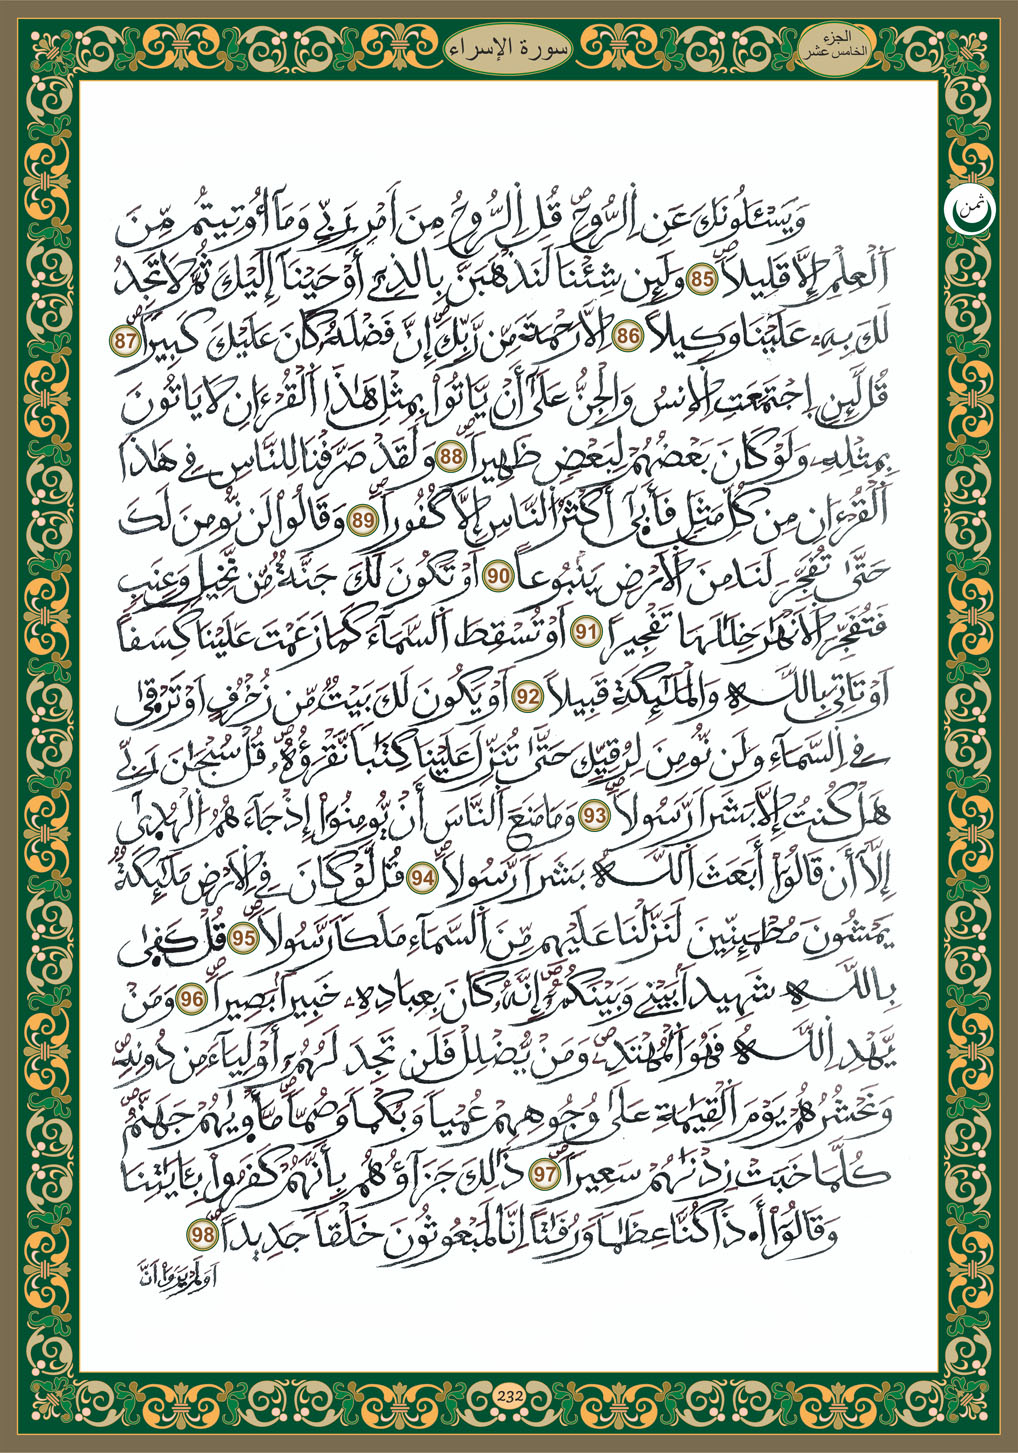 سورة الإسراء
الجزء
الخامس عشر
ثمن
وَيَسْـَٔلُونَكَ عَنِ اِ۬لرُّوحِۖ قُلِ اِ۬لرُّوحُ مِنَ اَمْرِ رَبِّے وَمَآ أُوتِيتُم مِّنَ
اَ۬لْعِلْمِ إِلَّا قَلِيلاٗۖ 85 وَلَئِن شِئْنَا لَنَذْهَبَنَّ بِالذِےٓ أَوْحَيْنَآ إِلَيْكَ ثُمَّ لَا تَجِدُ
لَكَ بِهِۦ عَلَيْنَا وَكِيلاً 86 اِلَّا رَحْمَةٗ مِّن رَّبِّكَۖ إِنَّ فَضْلَهُۥ كَانَ عَلَيْكَ كَبِيراٗۖ 87
قُل لَّئِنِ اِ۪جْتَمَعَتِ اِ۬لِانسُ وَالْجِنُّ عَلَيٰٓ أَنْ يَّاتُواْ بِمِثْلِ هَٰذَا اَ۬لْقُرْءَانِ لَا يَاتُونَ
بِمِثْلِهِۦ وَلَوْ كَانَ بَعْضُهُمْ لِبَعْضٖ ظَهِيراٗۖ 88 وَلَقَدْ صَرَّفْنَا لِلنَّاسِ فِے هَٰذَا
اَ۬لْقُرْءَانِ مِن كُلِّ مَثَلٖ فَأَبَيٰٓ أَكْثَرُ اُ۬لنَّاسِ إِلَّا كُفُوراٗۖ 89 وَقَالُواْ لَن نُّومِنَ لَكَ
حَتَّيٰ تُفَجِّرَ لَنَا مِنَ اَ۬لَارْضِ يَنۢبُوعاً 90 اَوْ تَكُونَ لَكَ جَنَّةٞ مِّن نَّخِيلٖ وَعِنَبٖ
فَتُفَجِّرَ اَ۬لَانْهَٰرَ خِلَٰلَهَا تَفْجِيراً 91 اَوْ تُسْقِطَ اَ۬لسَّمَآءَ كَمَا زَعَمْتَ عَلَيْنَا كِسَفاً
اَوْ تَاتِيَ بِاللَّهِ وَالْمَلَٰٓئِكَةِ قَبِيلاً 92 اَوْ يَكُونَ لَكَ بَيْتٞ مِّن زُخْرُفٍ اَوْ تَرْقَيٰ
فِے اِ۬لسَّمَآءِ وَلَن نُّومِنَ لِرُقِيِّكَ حَتَّيٰ تُنَزِّلَ عَلَيْنَا كِتَٰباٗ نَّقْرَؤُهُۥۖ قُلْ سُبْحَٰنَ رَبِّے
هَلْ كُنتُ إِلَّا بَشَراٗ رَّسُولاٗۖ 93 وَمَا مَنَعَ اَ۬لنَّاسَ أَنْ يُّومِنُوٓاْ إِذْ جَآءَهُمُ اُ۬لْهُدَيٰٓ
إِلَّآ أَن قَالُوٓاْ أَبَعَثَ اَ۬للَّهُ بَشَراٗ رَّسُولاٗۖ 94 قُل لَّوْ كَانَ فِے اِ۬لَارْضِ مَلَٰٓئِكَةٞ
يَمْشُونَ مُطْمَئِنِّينَ لَنَزَّلْنَا عَلَيْهِم مِّنَ اَ۬لسَّمَآءِ مَلَكاٗ رَّسُولاٗۖ 95 قُلْ كَفَيٰ
بِاللَّهِ شَهِيداَۢ بَيْنِے وَبَيْنَكُمُۥٓۖ إِنَّهُۥ كَانَ بِعِبَادِهِۦ خَبِيراَۢ بَصِيراٗۖ 96 وَمَنْ
يَّهْدِ اِ۬للَّهُ فَهُوَ اَ۬لْمُهْتَدِۦۖ وَمَنْ يُّضْلِلْ فَلَن تَجِدَ لَهُمُۥٓ أَوْلِيَآءَ مِن دُونِهِۦۖ
وَنَحْشُرُهُمْ يَوْمَ اَ۬لْقِيَٰمَةِ عَلَيٰ وُجُوهِهِمْ عُمْياٗ وَبُكْماٗ وَصُمّاٗۖ مَّأْوَيٰهُمْ جَهَنَّمُۖ
كُلَّمَا خَبَتْ زِدْنَٰهُمْ سَعِيراٗۖ 97 ذَٰلِكَ جَزَآؤُهُم بِأَنَّهُمْ كَفَرُواْ بِـَٔايَٰتِنَا
وَقَالُوٓاْ أَ.ذَا كُنَّا عِظَٰماٗ وَرُفَٰتاً اِنَّا لَمَبْعُوثُونَ خَلْقاٗ جَدِيداٗۖ 98
اَوَلَمْ يَرَوَاْ اَنَّ
232